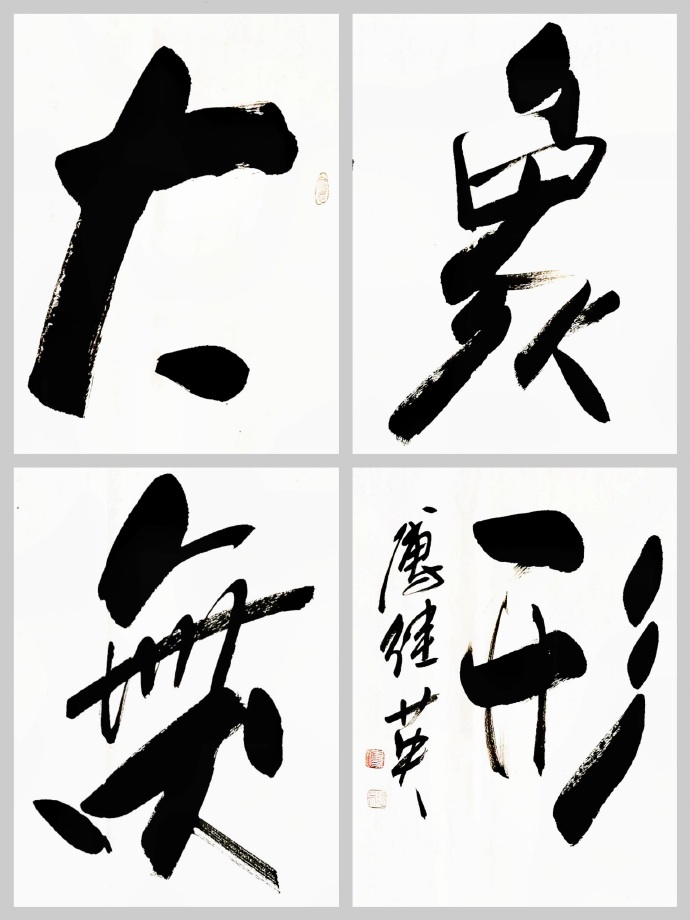 大
象
無
形
英